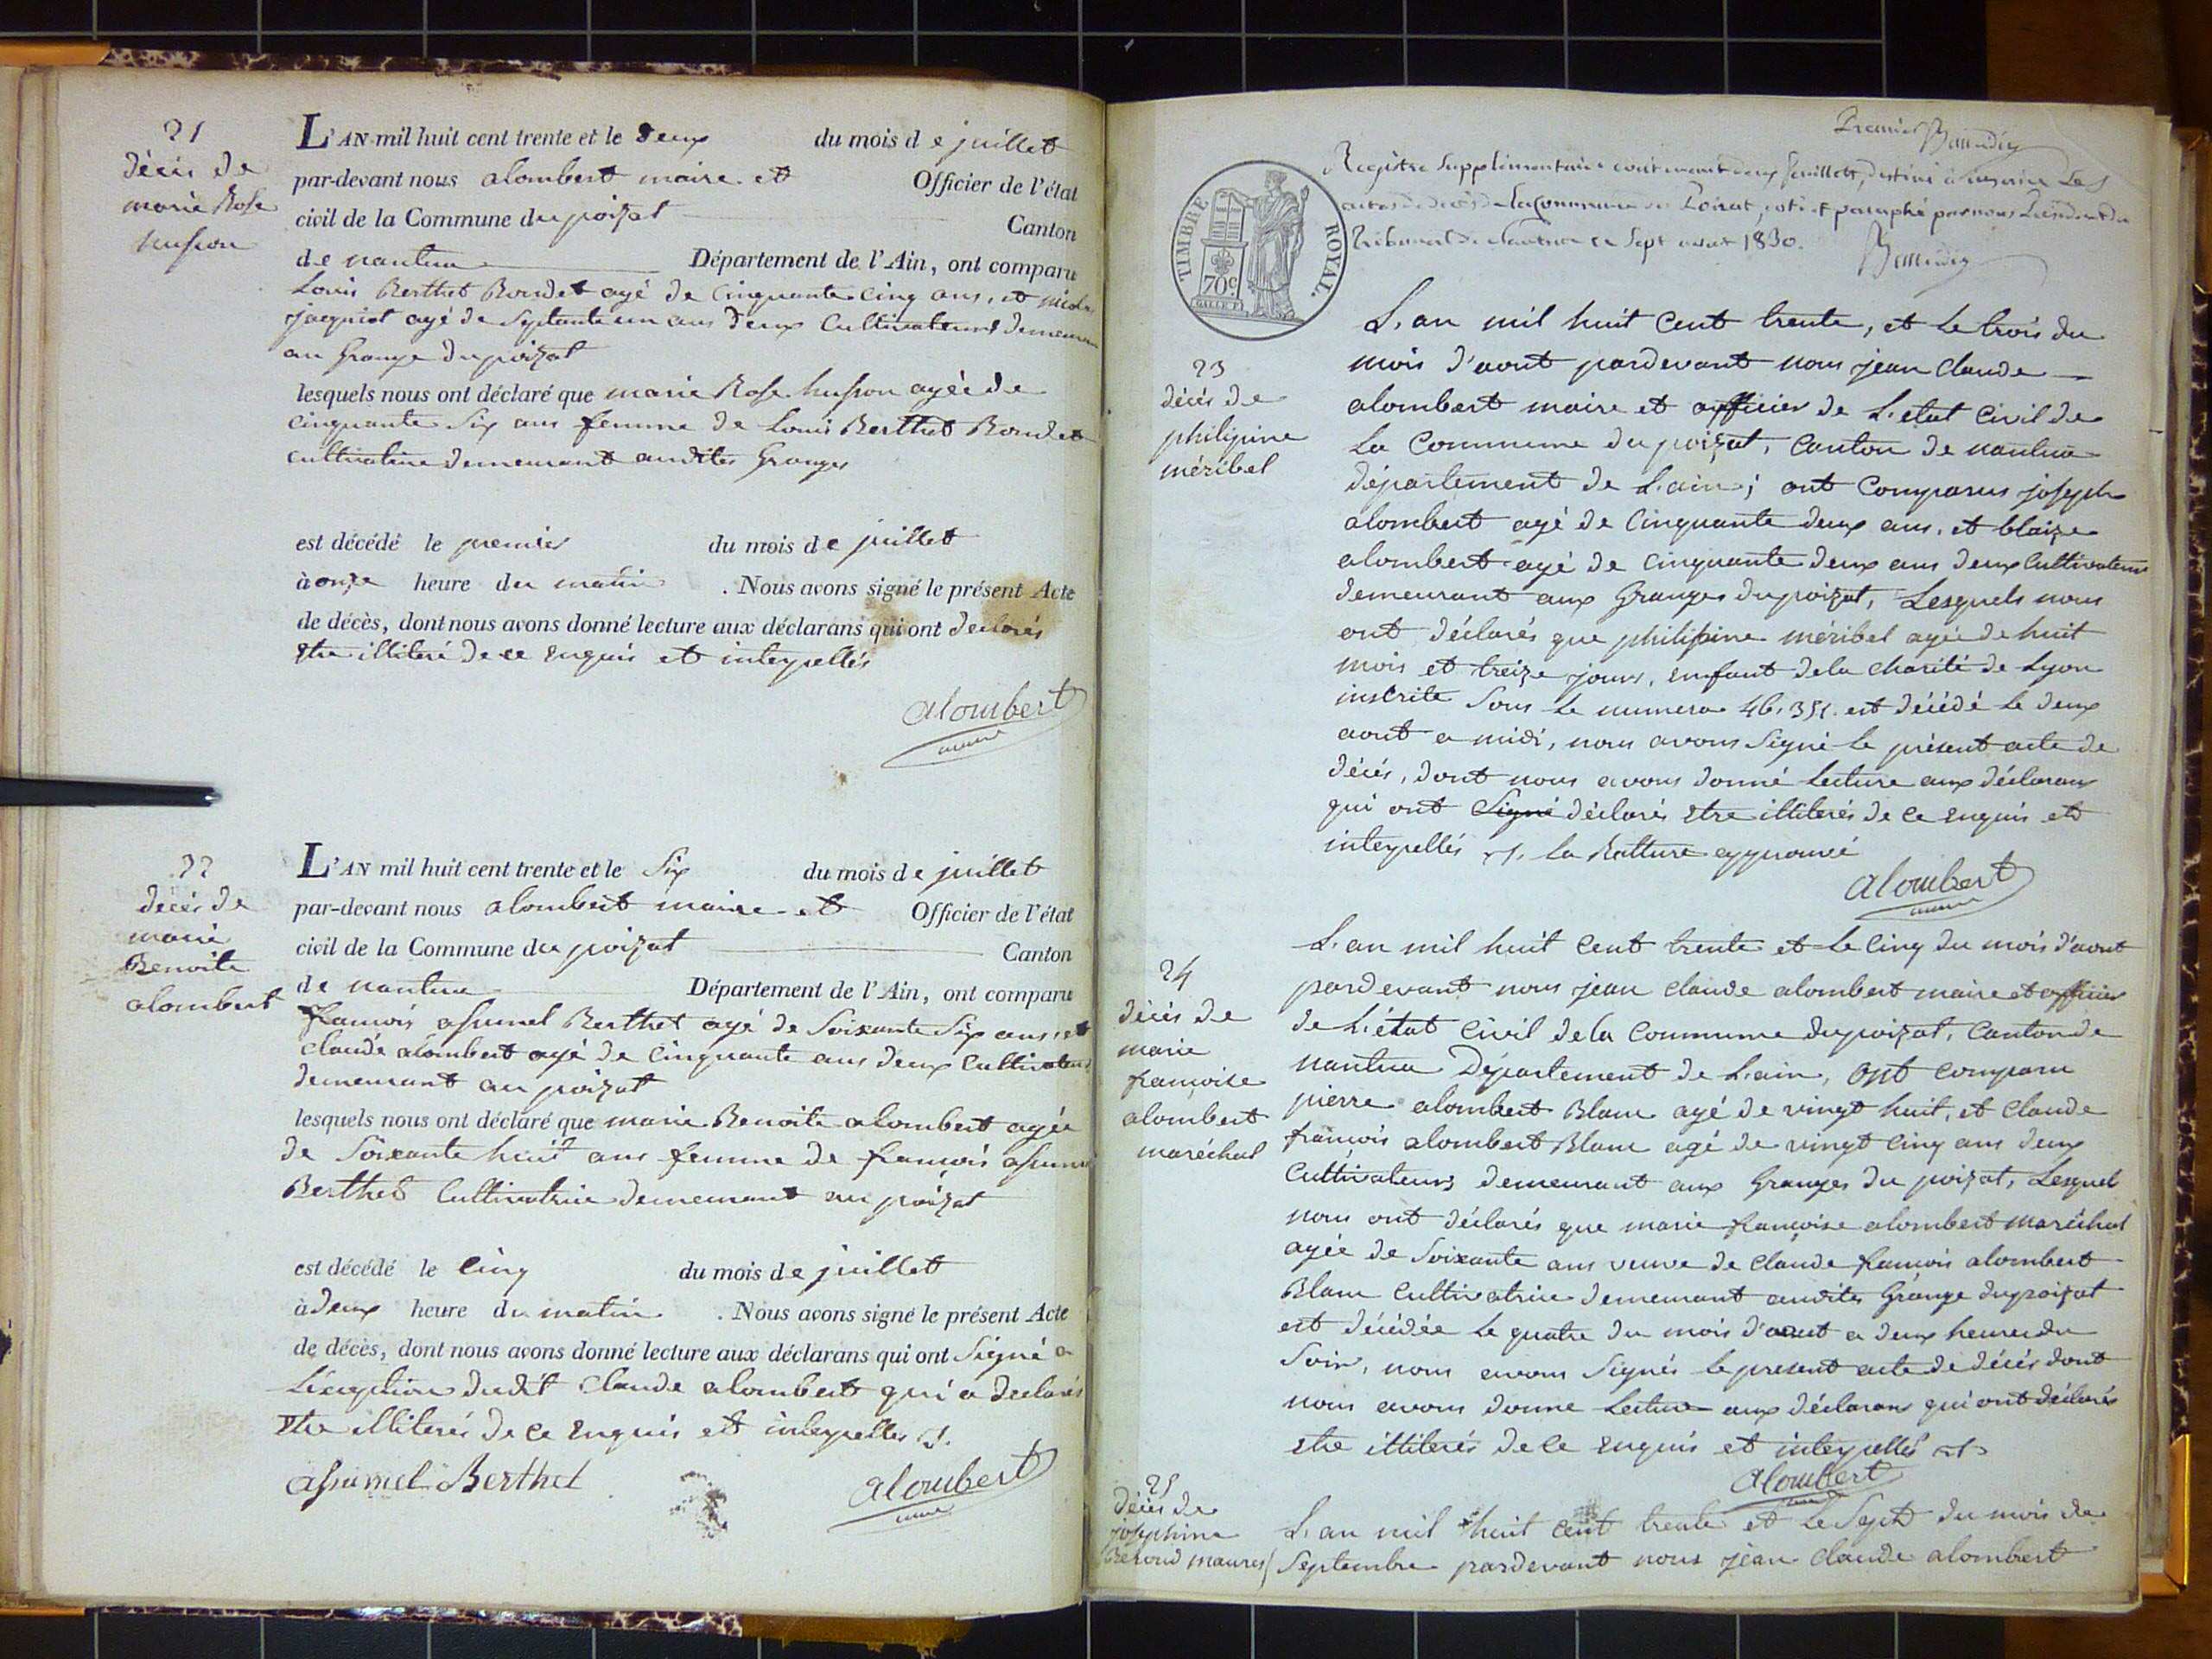 21
décés de
marie Rose
husson
L'AN mil huit cent trente et le deux du mois de juillet
par-devant nous alombert maire et Officier de l'état
civil de la Commune du poizat Canton
de nantua Département de l'Ain, ont comparu
Louis Berthet Bondet agé de Cinquante Cinq ans, et
jacquiot agé de Septante un ans deux Cultivateurs
au Grange du poizat
lesquels nous ont déclaré que marie Rose husson agée de
Cinquante Six ans femme de Louis Berthet Bondet
cultivatrice demeurant audites Granges
est décédé le premier du mois de juillet
à onze heure du matin . Nous avons signé le présent Acte
de décès, dont nous avons donné lecture aux déclarans qui ont declarés
Etre illiteré de ce Enquis et interpellés
alombert
22
décés de
marie
Benoite
alombert
L'AN mil huit cent trente et le Six du mois de juillet
par-devant nous alombert maire et Officier de l'état
civil de la Commune du poizat Canton
de nantua Département de l'Ain, ont comparu
françois assumel Berthet agé de Soixante Six ans, et
Claude alombert agé de Cinquante ans deux Cultivateurs
demeurant au poizat
lesquels nous ont déclaré que marie Benoite alombert agée
de Soixante huit ans femme de françois
Berthet Cultivatrice demeurant au poizat
est décédé le Cinq du mois de juillet
à deux heure du matin . Nous avons signé le présent Acte
de décès, dont nous avons donné lecture aux déclarans qui ont Signé a
L'éxception dudit Claude alombert qui a declarés
Etre illiterés de ce Enquis et interpelles
assumel Berthet alombert
Premier
Registre Supplémentaire contenant deux feuillets, destiné à inscrire Les
actes de décès de la Commune du Poizat, coté et paraphé par nous Président du
Tribunal de Nantua ce Sept aout 1830.
TIMBRE ROYAL.
70c.
L'an mil huit Cent trente, et Le trois du
mois d'aout pardevant nous jean Claude
alombert maire et officier de L'etat Civil de
La Commune du poizat, Canton de nantua
département de L'ain; ont Comparus joseph
alombert agé de Cinquante deux ans, et blaize
alombert agé de Cinquante deux ans deux Cultivateurs
demeurant aux Granges du poizat, Lesquels nous
ont déclarés que philipine méribel agée de huit
mois et treize jours, enfant dela Charité de Lyon
inscrite Sous Le numero 46,351. est décédé Le deux
aout a midi, nous avons Signé Le présent acte de
décés, dont nous avons donné Lecture aux déclarans
qui ont Signé déclarés Etre illiterés de ce Enquis et
interpellés La Ratture approuvé
alombert
23
décés de
philipine
méribel
L'an mil huit Cent trente et Le Cinq du mois d'aout
pardevant nous jean Claude alombert maire et officier
de L'état Civil dela Commune du poizat, Canton de
nantua Département de L'ain, ont comparu
pierre alombert Blanc agé de vingt huit, et Claude
françois alombert Blanc agé de vingt Cinq ans deux
Cultivateurs demeurant aux Granges du poizat, Lesquel
nous ont déclarés que marie françoise alombert maréchal
agée de Soixante ans veuve de Claude françois alombert
Blanc Cultivatrice demeurant audites Grange du poizat
est décédée Le quatre du mois d'aout a deux heures du
Soir, nous avons Signés Le present acte de décés dont
nous avons donné Lecture aux déclarans qui ont déclarés
etre illiterés de ce Enquis et interpellés
alombert
24
décés de
marie
françoise
alombert
maréchal
25
décés de
josephine
Beroud maures
L'an mil huit Cent trente et Le Sept du mois de
Septembre pardevant nous jean Claude alombert